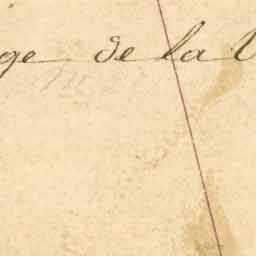 ge de la V